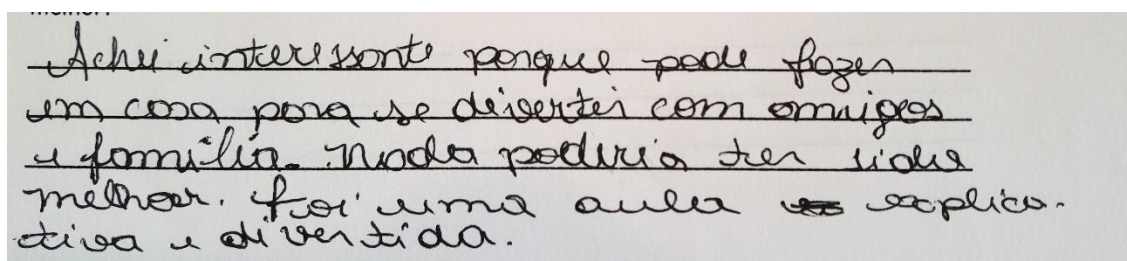 Achei interessante porque pode fazer
em casa para se divertir com amigos
e família. Nada poderia ter sido
melhor. Foi uma aula explica-
tiva e divertida.